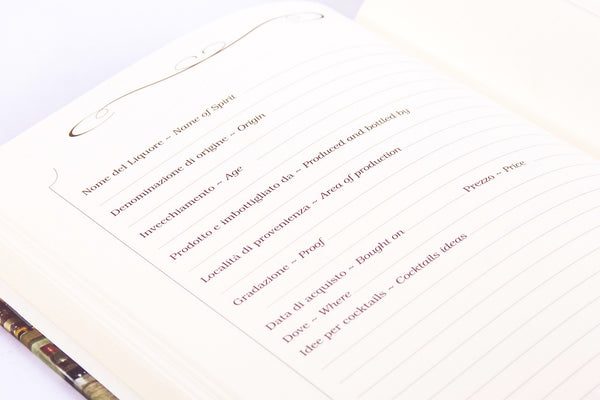 Nome del Liquore ~ Name of Spirit
Denominazione di origine ~ Origin
Invecchiamento ~ Age
Prodotto e imbottigliato da ~ Produced and bottled by
Località di provenienza ~ Area of production
Gradazione ~ Proof
Data di acquisto ~ Bought on Prezzo ~ Price
Dove ~ Where
Idee per cocktails ~ Cocktails ideas